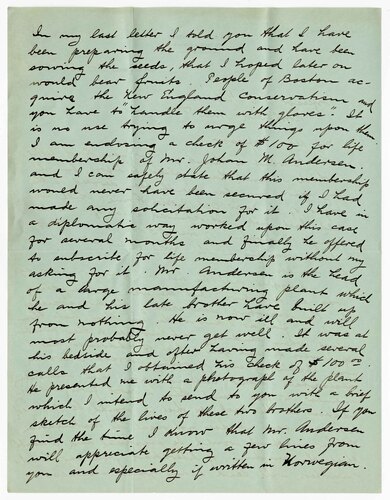 In my last letter I told you that I have
been preparing the ground and have been
sowing the seeds, that I hoped later on
would bear fruits. People of Boston ac-
quire the New England Conservatism and
you have to "handle them with gloves". It
is no use trying to urge things upon them.
I am enclosing a check of $100 for life
membership of Mr. Johan M. Andersen.
and I can safely state that this membership
would never have been secured if I had
made any solicitation for it. I have in
a diplomatic way worked upon this case
for several months and finally he offered
to subscribe for life membership without my
asking for it. Mr. Andersen is the head
of a large manufacturing plant which
he and his late brother have built up
from nothing. He is now ill and will
most probably never get well. It was at
his bedside and after having made several
calls that I obtained his check of $100.00.
He presented me with a photograph of the plant
which I intend to send to you with a brief
sketch of the lives of these two brothers. If you
find the time, I know that Mr. Andersen
will appreciate getting a few lines from
you and especially if written in Norwegian.